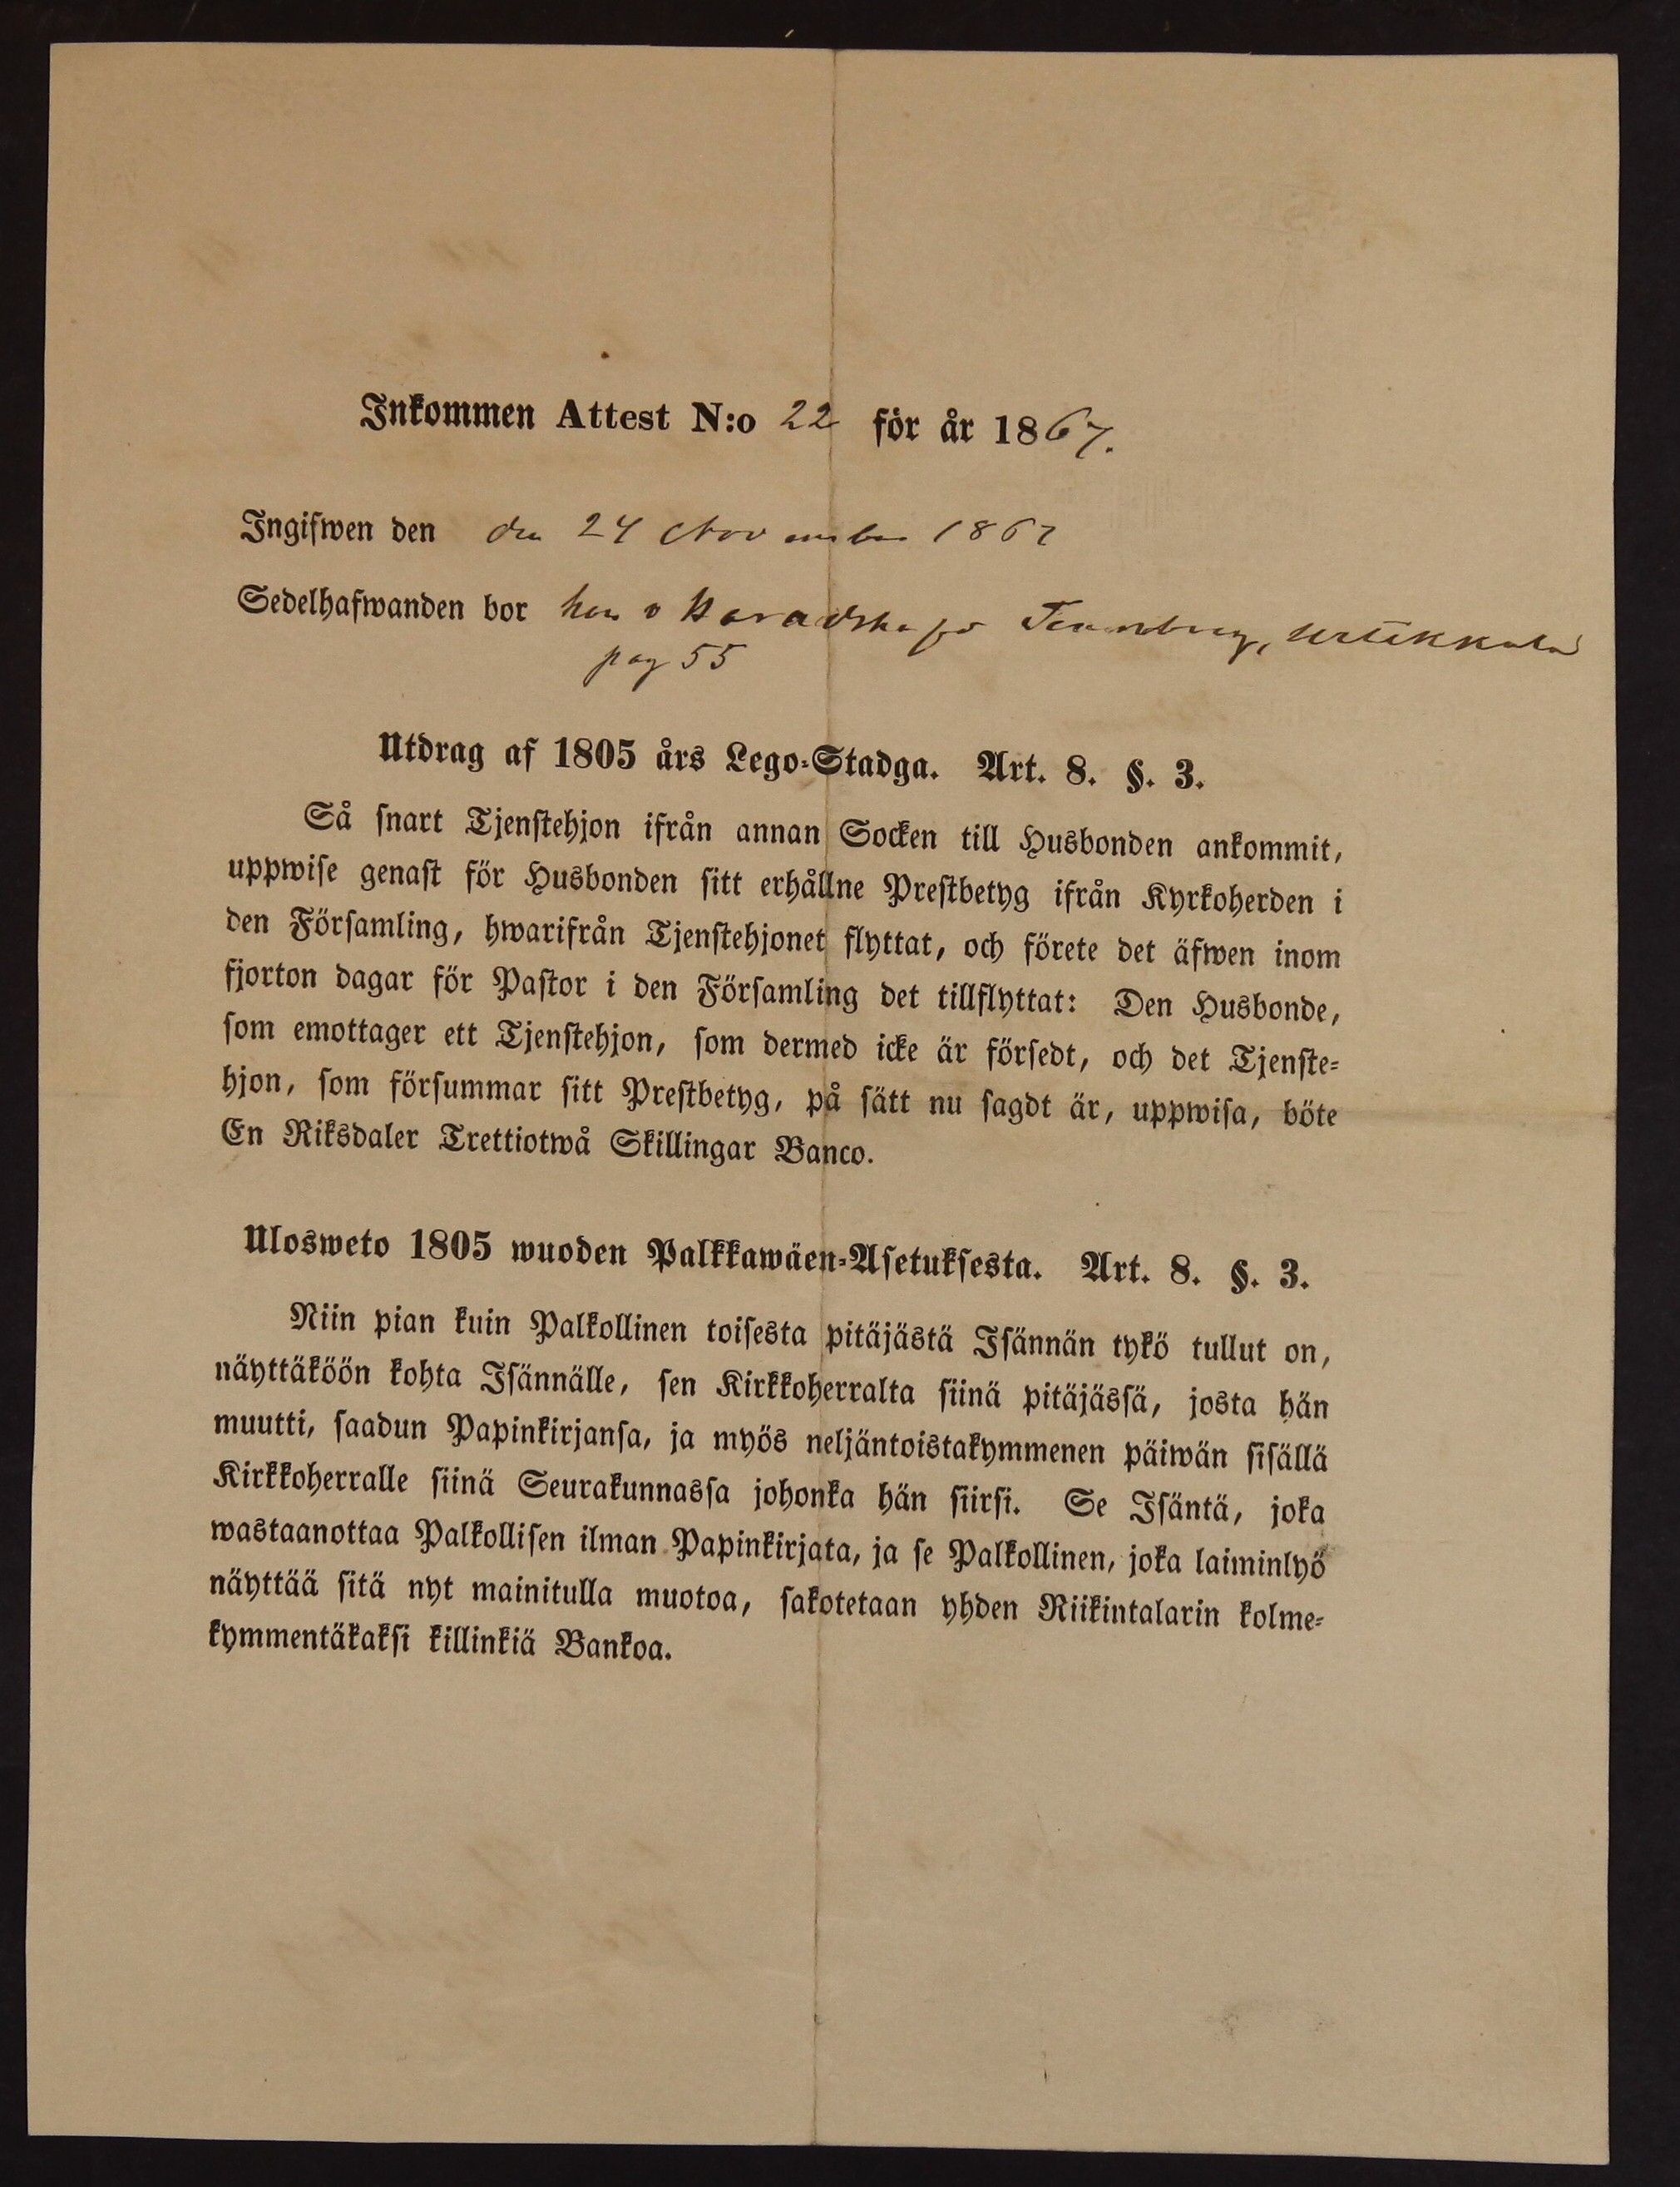 Inkommen Attest N:o 22 för år 1867.
Ingifwen den den 24 November 1867
Sedelhafwanden bor hos
pag 55
Utdrag af 1805 års Lego-Stadga. Art. 8. §. 3.
Så snart Tjenstehjon ifrån annan Socken till Husbonden ankommit,
uppwise genast för Husbonden sitt erhållne Prestbetyg ifrån Kyrkoherden i
den Församling, hwarifrån Tjenstehjonet flyttat, och förete det äfwen inom
fjorton dagar för Pastor i den Församling det tillflyttat: Den Husbonde,
som emottager ett Tjenstehjon, som dermed icke är försedt, och det Tjenste-
hjon, som försummar sitt Prestbetyg, på sätt nu sagdt är, uppwisa, böte
En Riksdaler Trettiotwå Skillingar Banco.
Ulosweto 1805 wuoden Palkkawäen-Asetuksesta. Art. 8. §. 3.
Niin pian kuin Palkollinen toisesta pitäjästä Isännän tykö tullut on,
näyttäköön kohta Isännälle, sen Kirkkoherralta siinä pitäjässä, josta hän
muutti, saadun Papinkirjansa, ja myös neljäntoistakymmenen päiwän sisällä
Kirkkoherralle siinä Seurakunnassa johonka hän siirsi. Se Isäntä, joka
wastaanottaa Palkollisen ilman Papinkirjata, ja se Palkollinen, joka laiminlyö
näyttää sitä nyt mainitulla muotoa, sakotetaan yhden Riikintalarin kolme-
kymmentäkaksi killinkiä Bankoa.